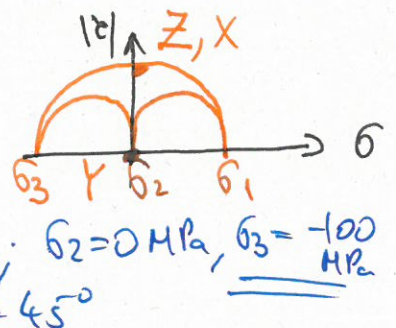 |τ| Z, X
σ
σ3 Y σ2 σ1
; σ2=0 MPa, σ3= -100
MPa
45°